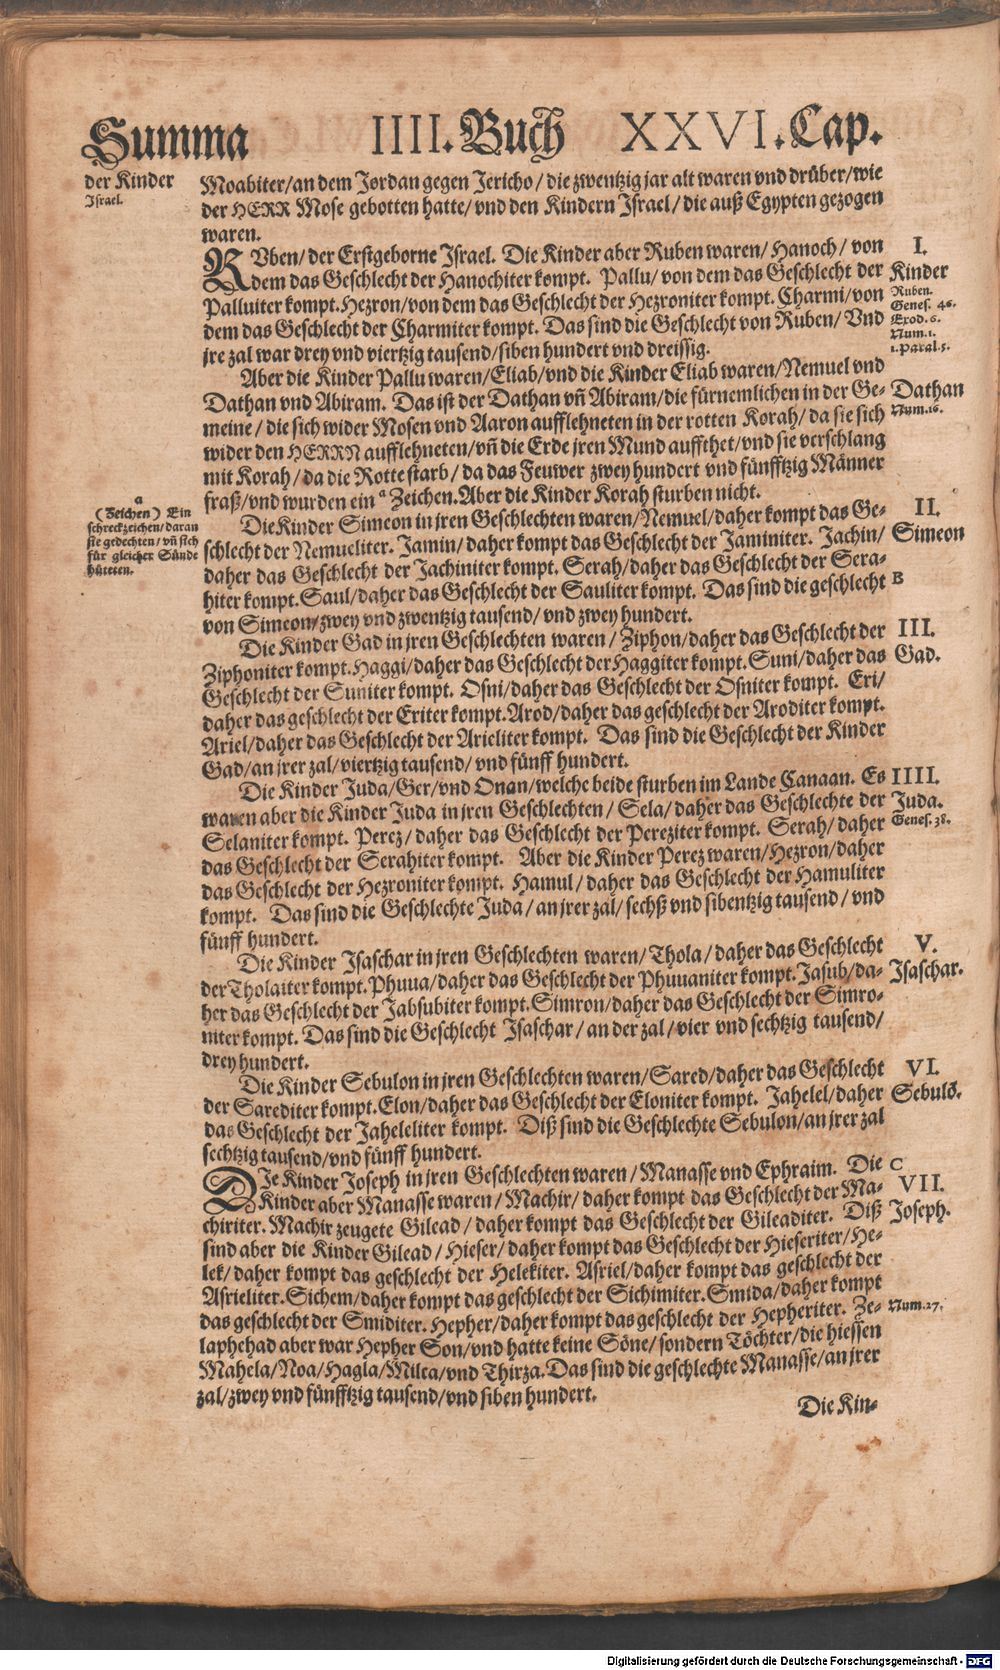 Summa IIII. Buch XXVI. Cap.
der Kinder
Israel.
Moabiter/an dem Jordan gegen Jericho/ die zwentzig jar alt waren vnd drüber/wie
der HERR Mose gebotten hatte/ vnd den Kindern Israel/ die auß Egypten gezogen
waren.
RVben/ der Erstgeborne Israel. Die Kinder aber Ruben waren/ Hanoch/ von
dem das Geschlecht der Hanochiter kompt. Pallu/ von dem das Geschlecht der
Palluiter kompt. Hezron/von dem das Geschlecht der Hezroniter kompt. Charmi/von
dem das Geschlecht der Charmiter kompt. Das sind die Geschlecht von Ruben/ Vnd
jre zal war drey vnd viertzig tausend/siben hundert vnd dreissig.
I.
Kinder
Ruben.
Genes. 46.
Exod. 6.
Num. 1.
1. Paral. 5.
Aber die Kinder Pallu waren/Eliab/vnd die Kinder Eliab waren/Nemuel vnd
Dathan vnd Abiram. Das ist der Dathan vñ Abiram/die fürnemlichen in der Ge-
meine/ die sich wider Mosen vnd Aaron aufflehneten in der rotten Korah/ da sie sich
wider den HERRN aufflehneten/vñ die Erde jren Mund auffthet/vnd sie verschlang
mit Korah/ da die Rotte starb/ da das Feuwer zwey hundert vnd fünfftzig Männer
fraß/vnd wurden ein a Zeichen. Aber die Kinder Korah sturben nicht.
Dathan
Num. 16.
a
(Zeichen) Ein
schreckzeichen/daran
sie gedechten/ vñ sich
für gleicher Sünde
hüteten.
Die Kinder Simeon in jren Geschlechten waren/Nemuel/daher kompt das Ge-
schlecht der Nemueliter. Jamin/ daher kompt das Geschlecht der Jaminiter. Jachin/
daher das Geschlecht der Jachiniter kompt. Serah/daher das Geschlecht der Sera-
hiter kompt. Saul/daher das Geschlecht der Sauliter kompt. Das sind die geschlecht
von Simeon/zwey vnd zwentzig tausend/ vnd zwey hundert.
II.
Simeon
B
Die Kinder Gad in jren Geschlechten waren/ Ziphon/daher das Geschlecht der
Ziphoniter kompt. Haggi/daher das Geschlecht der Haggiter kompt. Suni/daher das
Geschlecht der Suniter kompt. Osni/daher das Geschlecht der Osniter kompt. Eri/
daher das geschlecht der Eriter kompt. Arod/daher das geschlecht der Aroditer kompt.
Ariel/daher das Geschlecht der Arieliter kompt. Das sind die Geschlecht der Kinder
Gad/an jrer zal/viertzig tausend/ vnd fünff hundert.
III.
Gad.
Die Kinder Juda/Ger/vnd Onan/welche beide sturben im Lande Canaan. Es
waren aber die Kinder Juda in jren Geschlechten/ Sela/ daher das Geschlechte der
Selaniter kompt. Perez/ daher das Geschlecht der Pereziter kompt. Serah/ daher
das Geschlecht der Serahiter kompt. Aber die Kinder Perez waren/Hezron/daher
das Geschlecht der Hezroniter kompt. Hamul/ daher das Geschlecht der Hamuliter
kompt. Das sind die Geschlechte Juda/ an jrer zal/ sechß vnd sibentzig tausend/ vnd
fünff hundert.
IIII.
Juda.
Genes. 38.
Die Kinder Isaschar in jren Geschlechten waren/ Thola/ daher das Geschlecht
der Tholaiter kompt. Phuua/daher das Geschlecht der Phuuaniter kompt. Jasub/da-
her das Geschlecht der Jabsubiter kompt. Simron/daher das Geschlecht der Simro-
niter kompt. Das sind die Geschlecht Isaschar/ an der zal/ vier vnd sechtzig tausend/
drey hundert.
V.
Isaschar.
Die Kinder Sebulon in jren Geschlechten waren/Sared/daher das Geschlecht
der Sarediter kompt. Elon/daher das Geschlecht der Eloniter kompt. Jahelel/daher
das Geschlecht der Jaheleliter kompt. Diß sind die Geschlechte Sebulon/an jrer zal
sechtzig tausend/vnd fünff hundert.
VI.
Sebulõ.
DIe Kinder Joseph in jren Geschlechten waren/ Manasse vnd Ephraim. Die
Kinder aber Manasse waren/ Machir/ daher kompt das Geschlecht der Ma-
chiriter. Machir zeugete Gilead/ daher kompt das Geschlecht der Gileaditer. Diß
sind aber die Kinder Gilead/ Hieser/ daher kompt das Geschlecht der Hieseriter/He-
lek/ daher kompt das geschlecht der Helekiter. Asriel/daher kompt das geschlecht der
Asrieliter. Sichem/daher kompt das geschlecht der Sichimiter. Smida/daher kompt
das geschlecht der Smiditer. Hepher/daher kompt das geschlecht der Hepheriter. Ze-
laphehad aber war Hepher Son/vnd hatte keine Söne/ sondern Töchter/die hiessen
Mahela/Noa/Hagla/Milca/vnd Thirza. Das sind die geschlechte Manasse/an jrer
zal/zwey vnd fünfftzig tausend/vnd siben hundert.
C
VII.
Joseph.
Num. 27.
Die Kin-
Digitalisierung gefördert durch die Deutsche Forschungsgemeinschaft - DFG